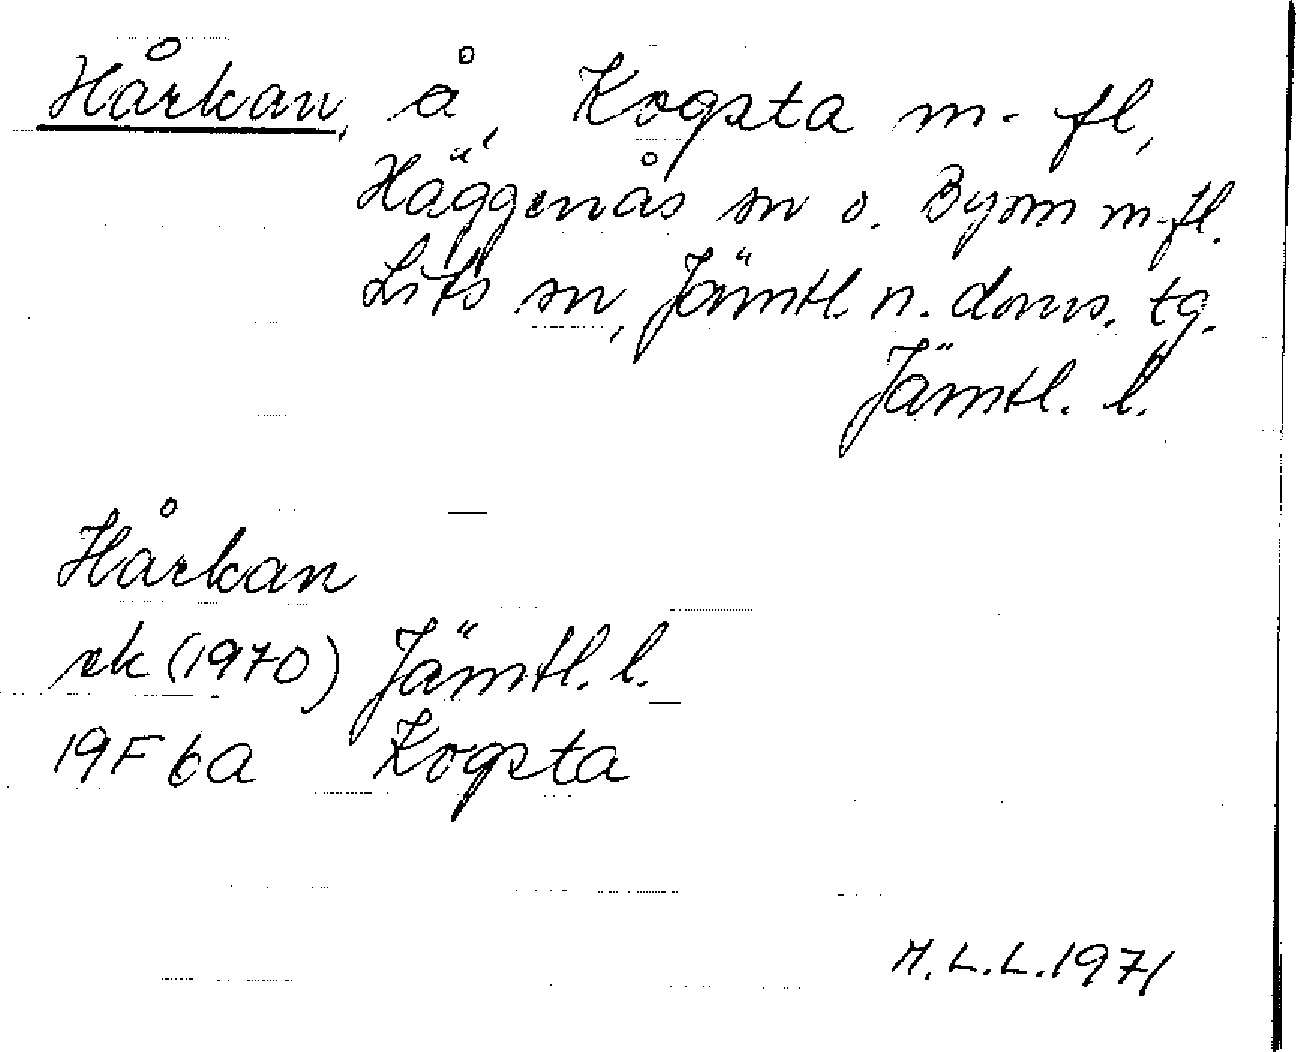 Hårkan, å, Kogsta m. fl,
Häggenås sn o. Byom m.fl.
Lits sn, Jämtl. n. doms. tg.
Jämtl. l.
Hårkan
rk (1970) Jämtl. l.
19F 6a Kogsta
M.L.L. 1971